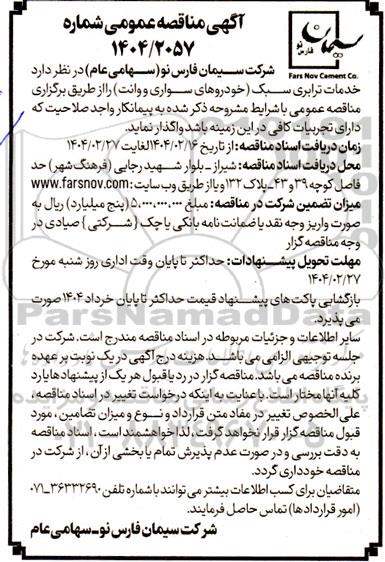 آگهی مناقصه عمومی شماره
۱۴۰۴/۲۰۵۷
سیمان
فارس نو
Fars Nov Cement Co.
شرکت سیمان فارس نو (سهامی عام) در نظر دارد
خدمات ترابری سبک (خودروهای سواری و وانت) را از طریق برگزاری
مناقصه عمومی با شرایط مشروحه ذکر شده به پیمانکار واجد صلاحیت که
دارای تجربیات کافی در این زمینه باشد واگذار نماید.
زمان دریافت اسناد مناقصه: از تاریخ ۱۴۰۴/۰۲/۱۶ لغایت ۱۴۰۴/۰۲/۲۷
محل دریافت اسناد مناقصه: شیراز - بلوار شهید رجایی (فرهنگ شهر) حد
فاصل کوچه ۳۹ و ۴۳ - پلاک ۱۳۲ و یا از طریق وب سایت: www.farsnov.com
میزان تضمین شرکت در مناقصه: مبلغ ۵,۰۰۰,۰۰۰,۰۰۰ (پنج میلیارد) ریال به
صورت واریز وجه نقد یا ضمانت نامه بانکی یا چک (شرکتی) صیادی در
وجه مناقصه گزار
مهلت تحویل پیشنهادات: حداکثر تا پایان وقت اداری روز شنبه مورخ
۱۴۰۴/۰۲/۲۷
بازگشایی پاکت های پیشنهاد قیمت حداکثر تا پایان خرداد ۱۴۰۴ صورت
می پذیرد.
سایر اطلاعات و جزئیات مربوطه در اسناد مناقصه مندرج است. شرکت در
جلسه توجیهی الزامی می باشد. هزینه درج آگهی در یک نوبت بر عهده
برنده مناقصه می باشد. مناقصه گزار در رد یا قبول هر یک از پیشنهادها یا رد
کلیه آنها مختار است. با عنایت به اینکه درخواست تغییر در اسناد مناقصه،
علی الخصوص تغییر در مفاد متن قرارداد و نوع و میزان تضامین، مورد
قبول مناقصه گزار قرار نخواهد گرفت، لذا خواهشمند است، اسناد مناقصه
به دقت بررسی و در صورت عدم پذیرش تمام یا بخشی از آن، از شرکت در
مناقصه خودداری گردد.
متقاضیان برای کسب اطلاعات بیشتر می توانند با شماره تلفن ۳۶۳۳۲۶۹۰-۰۷۱
(امور قراردادها) تماس حاصل فرمایند.
شرکت سیمان فارس نو - سهامی عام
ParsNamadData